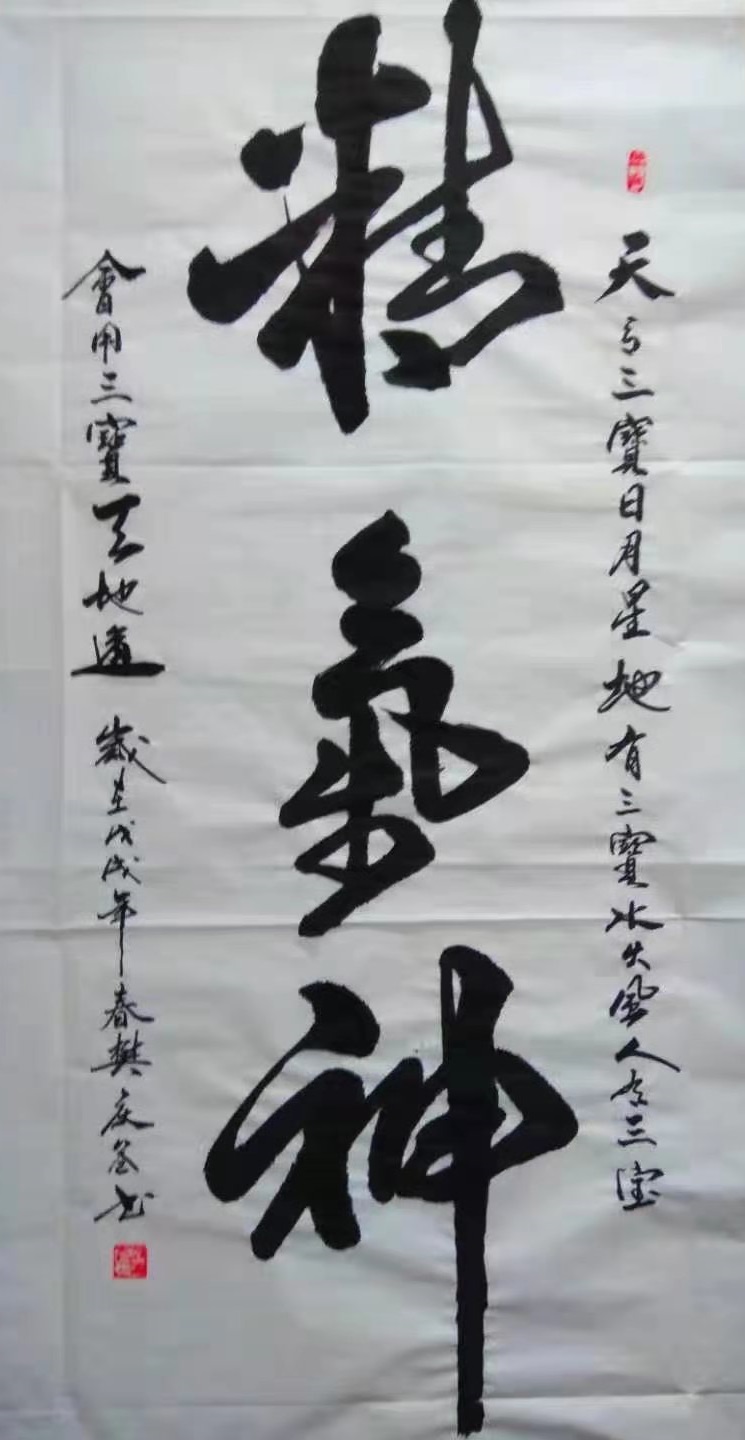 天有三寶日月星地有三寶水火風人有三寶
精氣神
會用三寶天地通
歲在戊戌年春樊慶書